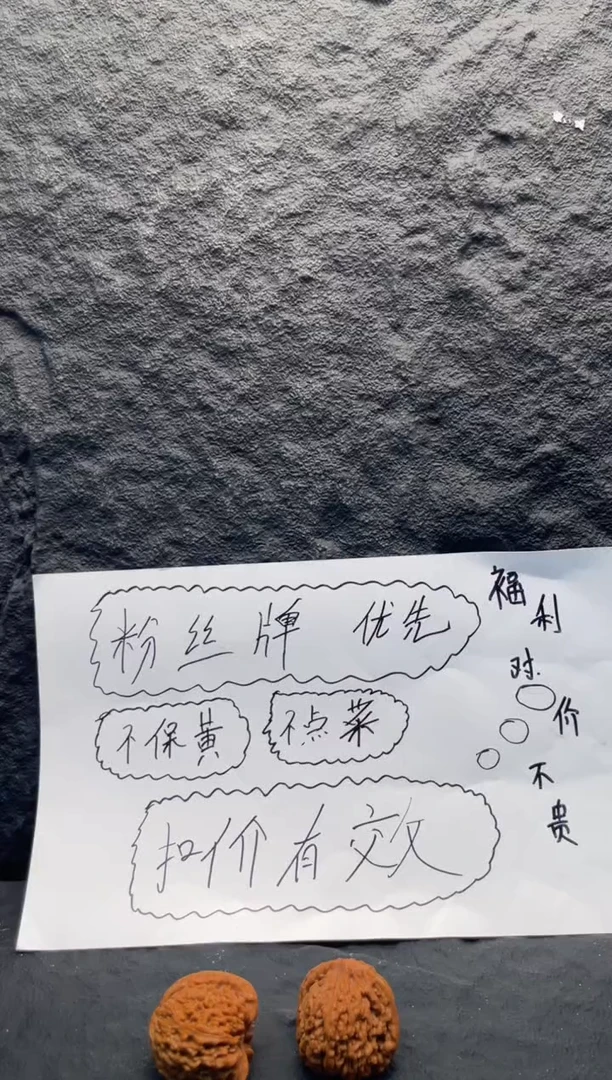 粉丝牌 优先
不保黄
不点菜
扣价有效
福利
对
价
不
贵